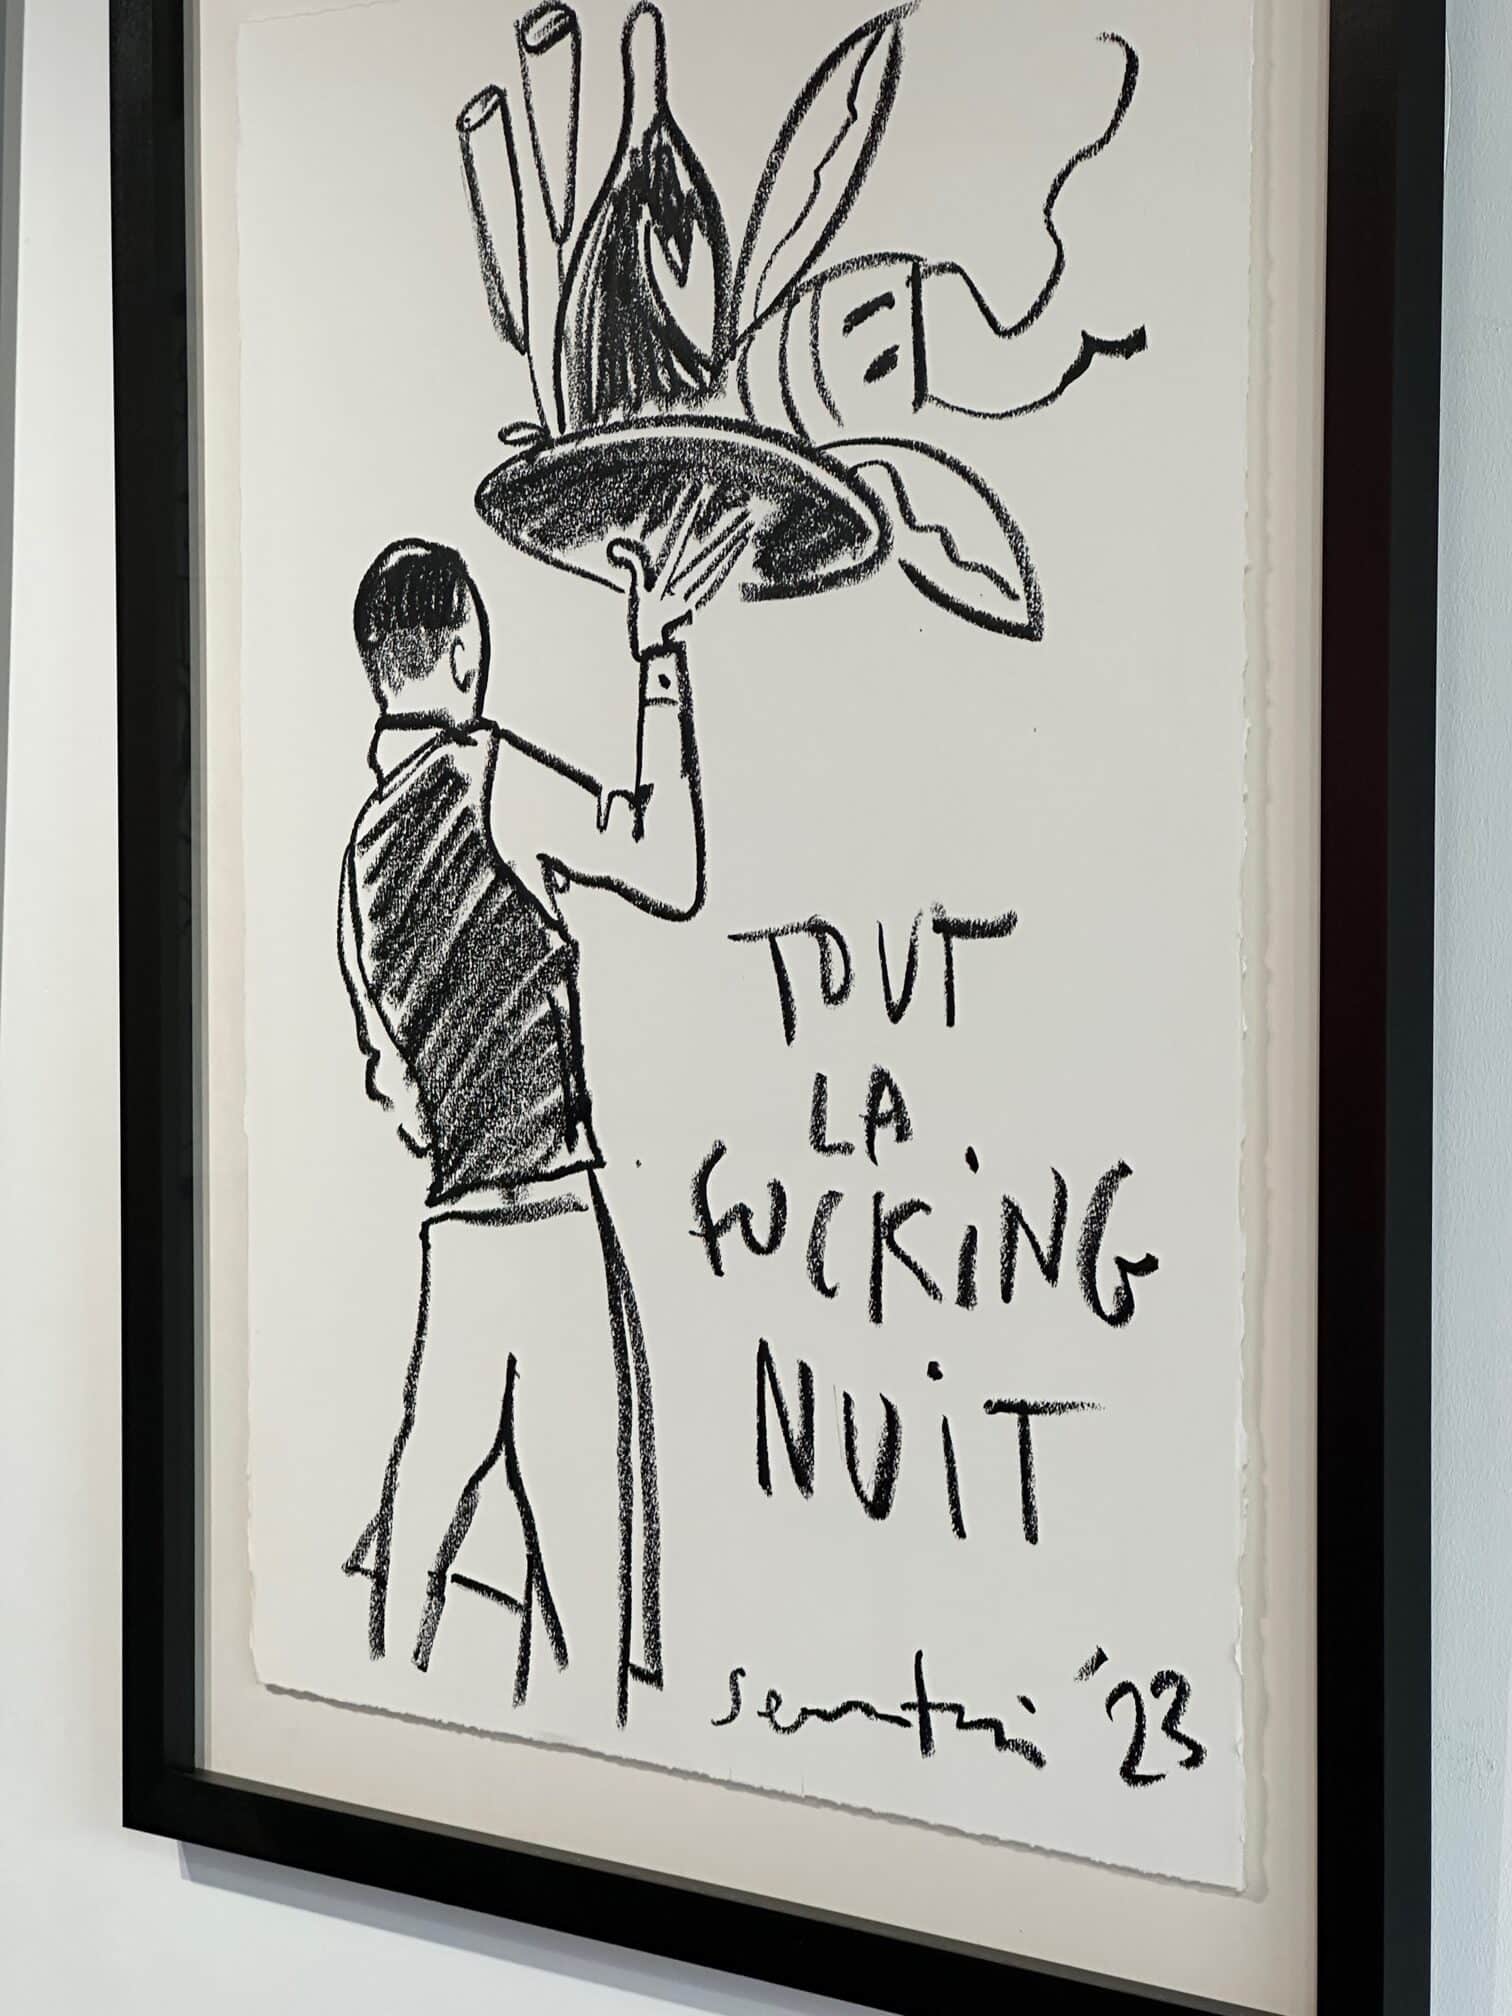 TOUT
LA
FUCKiNG
NUiT
'23